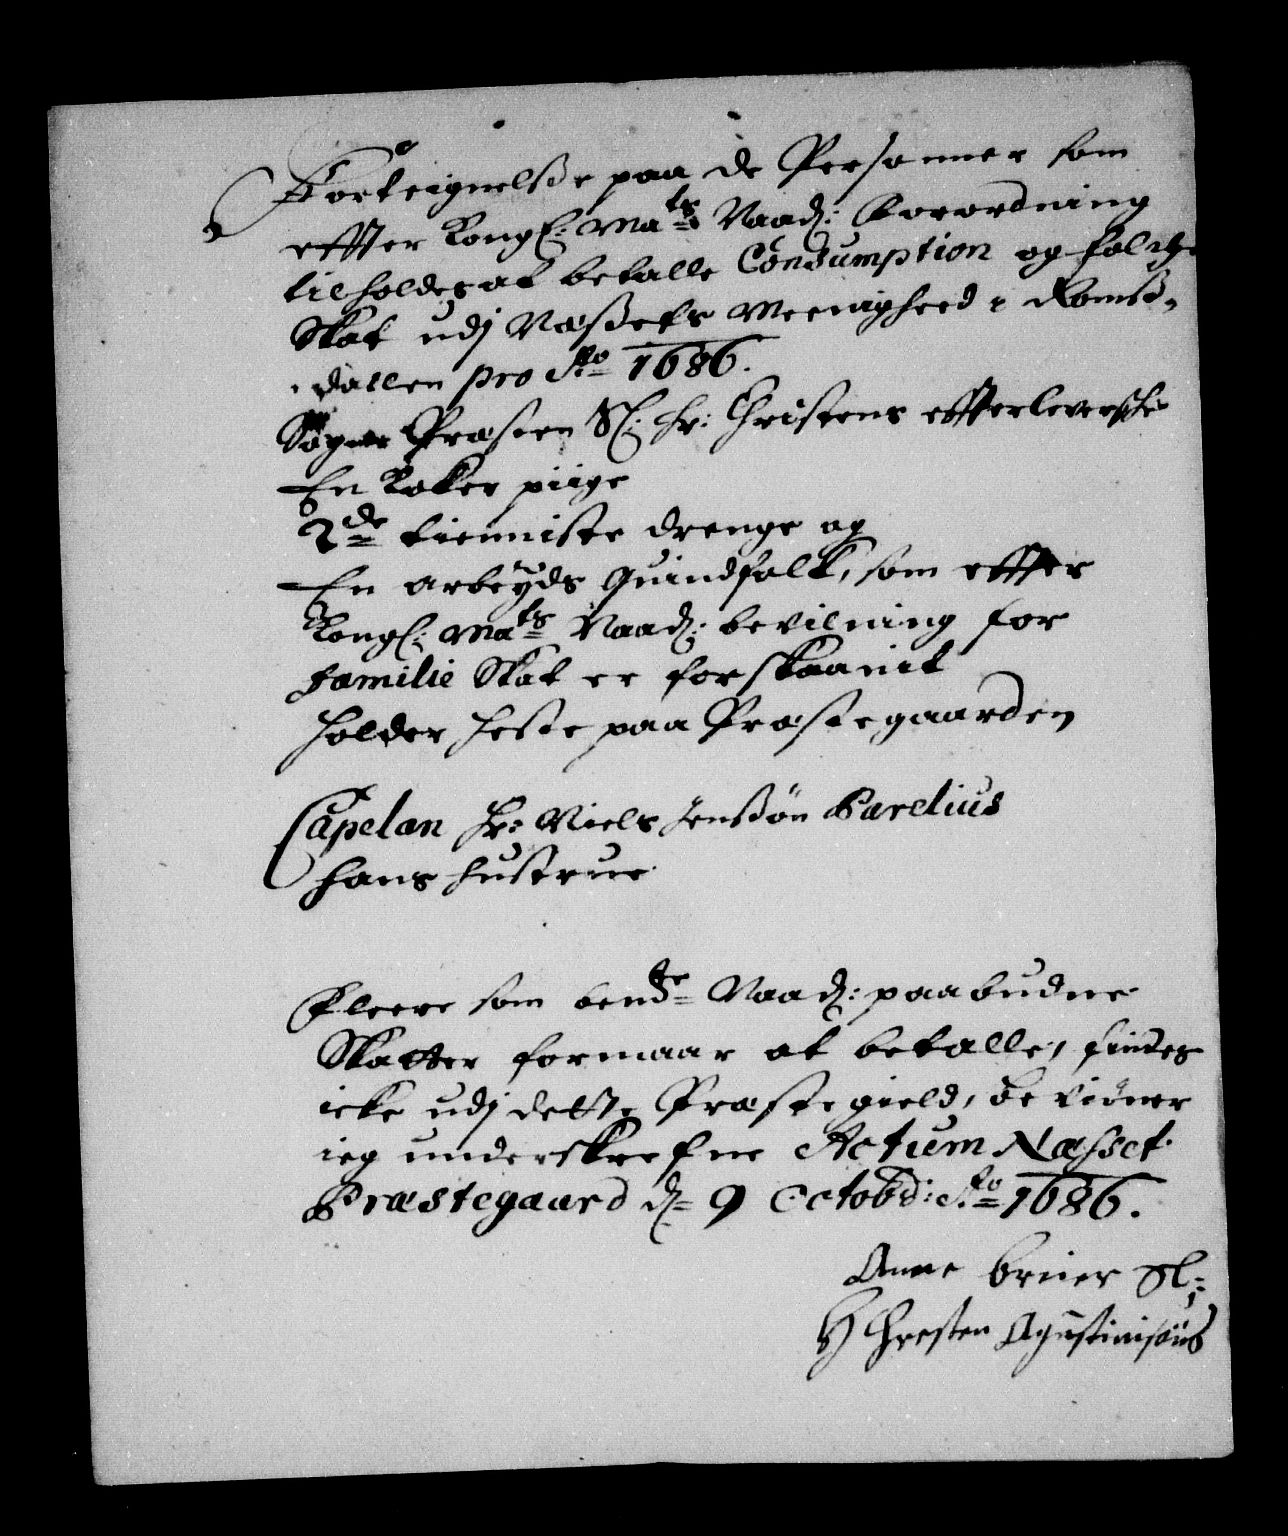 Forteignelße paa de Personner som
effter Kongl: Ma:ts Naad: Forordning
tilholdes at betalle Consumption og folche
Skat udj Næßets Meenigheed i Romß-
dallen pro Ao 1686.
Sogne Præsten Sl: Hr: Christens effterleversche
En Kocke piige
2de tienniste drenge og
En arbeyds Quindfolk, som effter
Kongl: Ma:ts Naad: bevilning for
familie Skat er forskaanit
holder heste paa Præstegaarden
Capelan Hr: Niels Jenßøn Parelius
hans hustrue
Fleere som bende Naad: paabudne
Skatter formaar at betalle, findes
icke udj dette Præstegield, Bevidner
ieg underskrefne Actum Næsset
Præstegaard d= 9 Octobr: Ao 1686.
Anne Bruer Sl:
H Chresten Agustinisøns